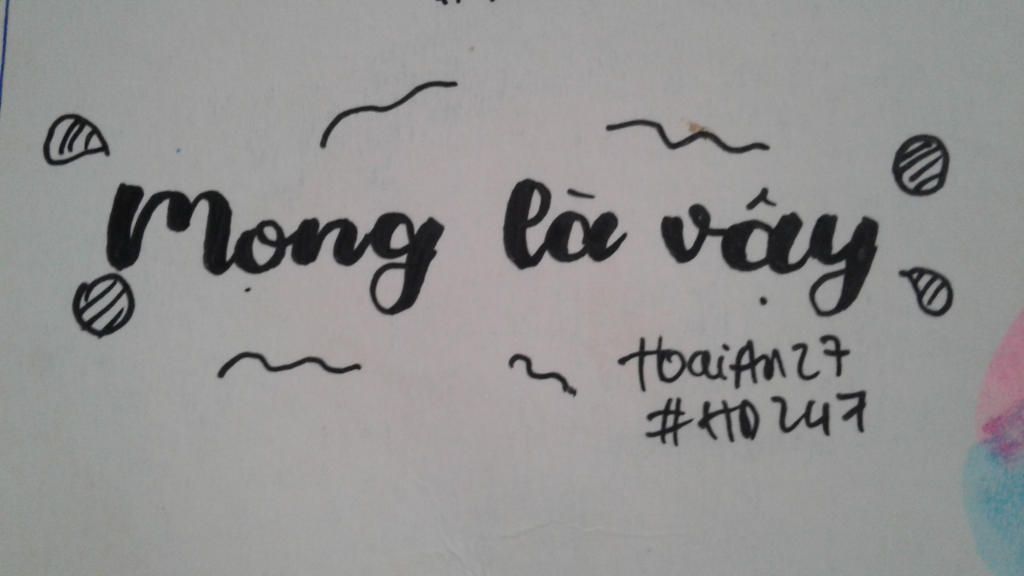 Mọng là vậy
HoaiAn27
#HD247